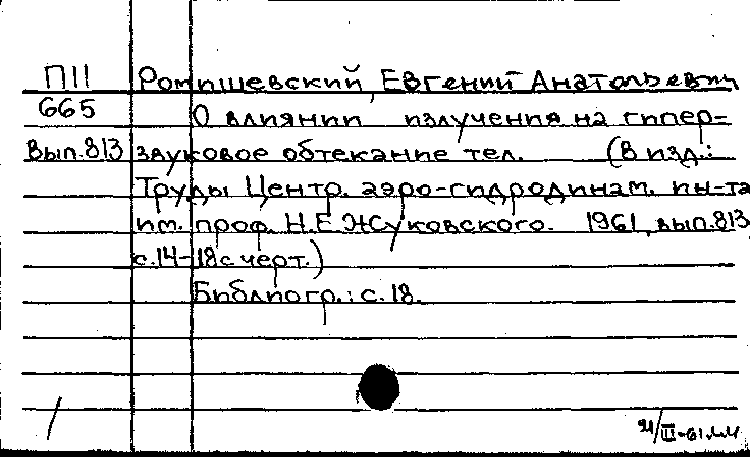 П11 Ромишевский, Евгений Анатольевич
665 О влиянии излучения на гипер=
Вып.813 звуковое обтекание тел. (В изд.:
Труды Центр. аэро-гидродинам. ин-та
им. проф. Н.Е.Жуковского. 1961, вып.813
с.14-18 с черт.)
Библиогр.: с.18.